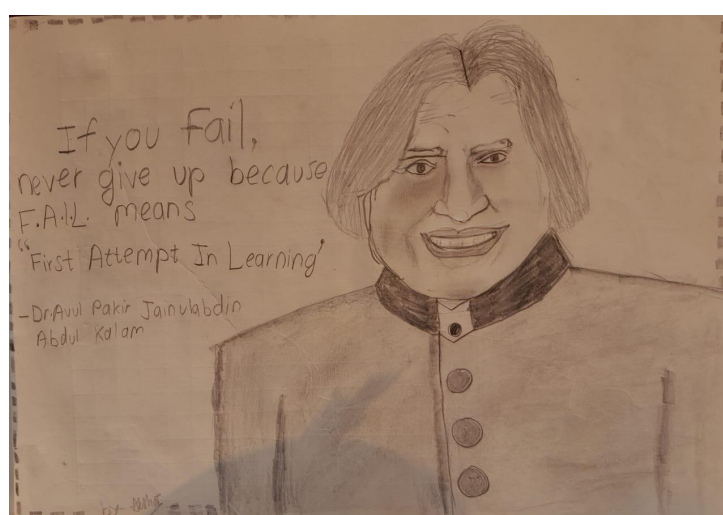 If you Fail,
never give up because
F.A.I.L. means
“First Attempt In Learning’
-Dr.Avul Pakir Jainulabdin
Abdul Kalam
by-